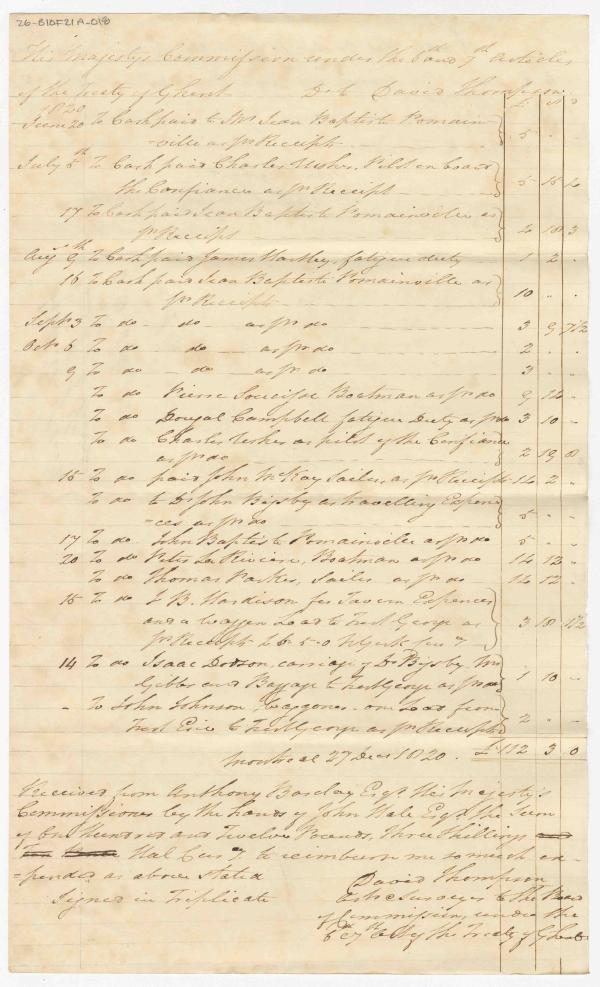 26-B10F21A-018
His Majestys Commission under the 6th and 7th articles
of the treaty of Ghent Dr to David Thompson
1820 £ s d
June 20 To Cash paid to Mr Jean Baptiste Pomain-
-ville as pr Receipt 5 " "
July 5th To Cash paid Charles Usher, Pilot on board
the Confiance as pr Receipt 5 15
17 To Cash paid Jean Baptiste Pomainville as
pr Receipt 4 18 3
Augt 9th To Cash paid James Hartley, fatigue duty 1 2 "
16 To Cash paid Jean Baptiste Pomainville as
pr Receipt 10 " "
Septr 3 To do do as pr do 3 9 7 1/2
Octr 6 To do do as pr do 2 " "
9 To do do as pr do 3 " "
To do Pierre Boatman as pr do 9 14 "
To do Dougal Campbell fatigue Duty as pr do 3 10 "
To do Charles Usher as pilot of the Confiance
as pr do 2 19 8
15 To do paid John McKay Sailor, as pr Receipt 14 2 "
To do to Dr John Bigsby as travelling Expen-
-ces as pr do 5 " "
17 To do John Baptiste Pomainville as pr do 5 " "
20 To do Peter La Riviere, Boatman as pr do 14 12 "
To do Thomas Parker, Sailor as pr do 14 12 "
15 To do J. B. Hardison for Tavern Expences
and a waggon Load to Fort George as
pr Receipt £6-5-0 N York Curry 3 18 1 1/2
14 To do Isaac Dobson, carriage of Dr Bigsby, Mr
Gibbs and Baggage to Fort George as pr do 1 10 "
" To John Johnson, waggoner one load from
Fort Erie to Fort George as pr Receipt 2 " "
Montreal 27 Decr 1820. £ 112 3 0
Received from Anthony Barclay Esqr His Majesty's
Commissioner by the hands of John Hale Esqr the Sum
of One Hundred and Twelve Pounds, Three Shillings
Hal Curry to reimburse me so much ex-
-pended as above stated
David Thompson
Signed in Triplicate Astr & Surveyor to the Board
of Commission, under the
6th & 7th of the Treaty of Ghent